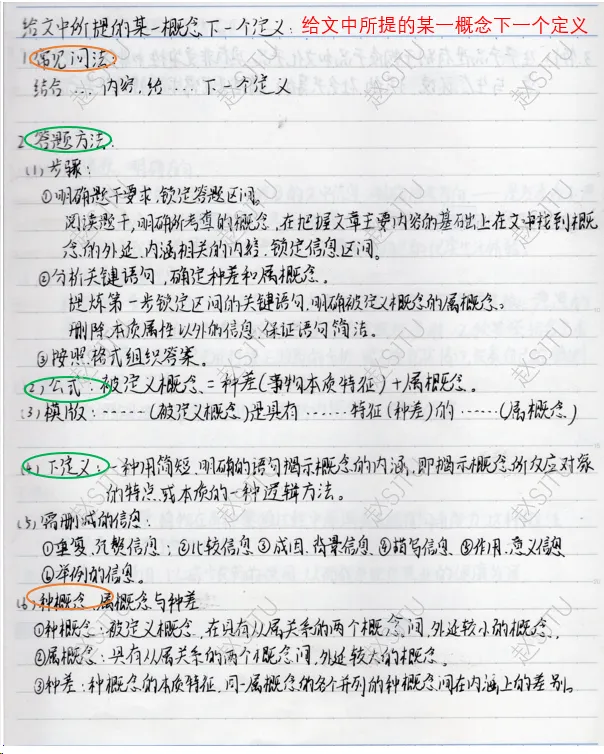 给文中所提的某一概念下一个定义: 给文中所提的某一概念下一个定义
1.常见问法:
结合……内容,给……下一个定义
2.答题方法.
(1)步骤:
①明确题干要求,锁定答题区间。
阅读题干,明确所考查的概念,在把握文章主要内容的基础上在文中找到概
念的外延、内涵相关的内容,锁定信息区间。
②分析关键语句,确定种差和属概念。
提炼第一步锁定区间的关键语句,明确被定义概念的属概念。
删除本质属性以外的信息,保证语句简洁。
③按照格式组织答案。
(2)公式:被定义概念=种差(事物本质特征)+属概念。
(3)模版:……(被定义概念)是具有……特征(种差)的……(属概念)
(4)下定义:一种用简短、明确的语句揭示概念的内涵,即揭示概念所反应对象
的特点或本质的一种逻辑方法。
(5)需删减的信息:
①重复、冗赘信息;②比较信息③成因、背景信息④描写信息⑤作用、意义信息
⑥举例的信息。
(6)种概念、属概念与种差
①种概念:被定义概念,在具有从属关系的两个概念间,外延较小的概念。
②属概念:具有从属关系的两个概念间,外延较大的概念。
③种差:种概念的本质特征,同一属概念的各个并列的种概念间在内涵上的差别。
赵SJTU